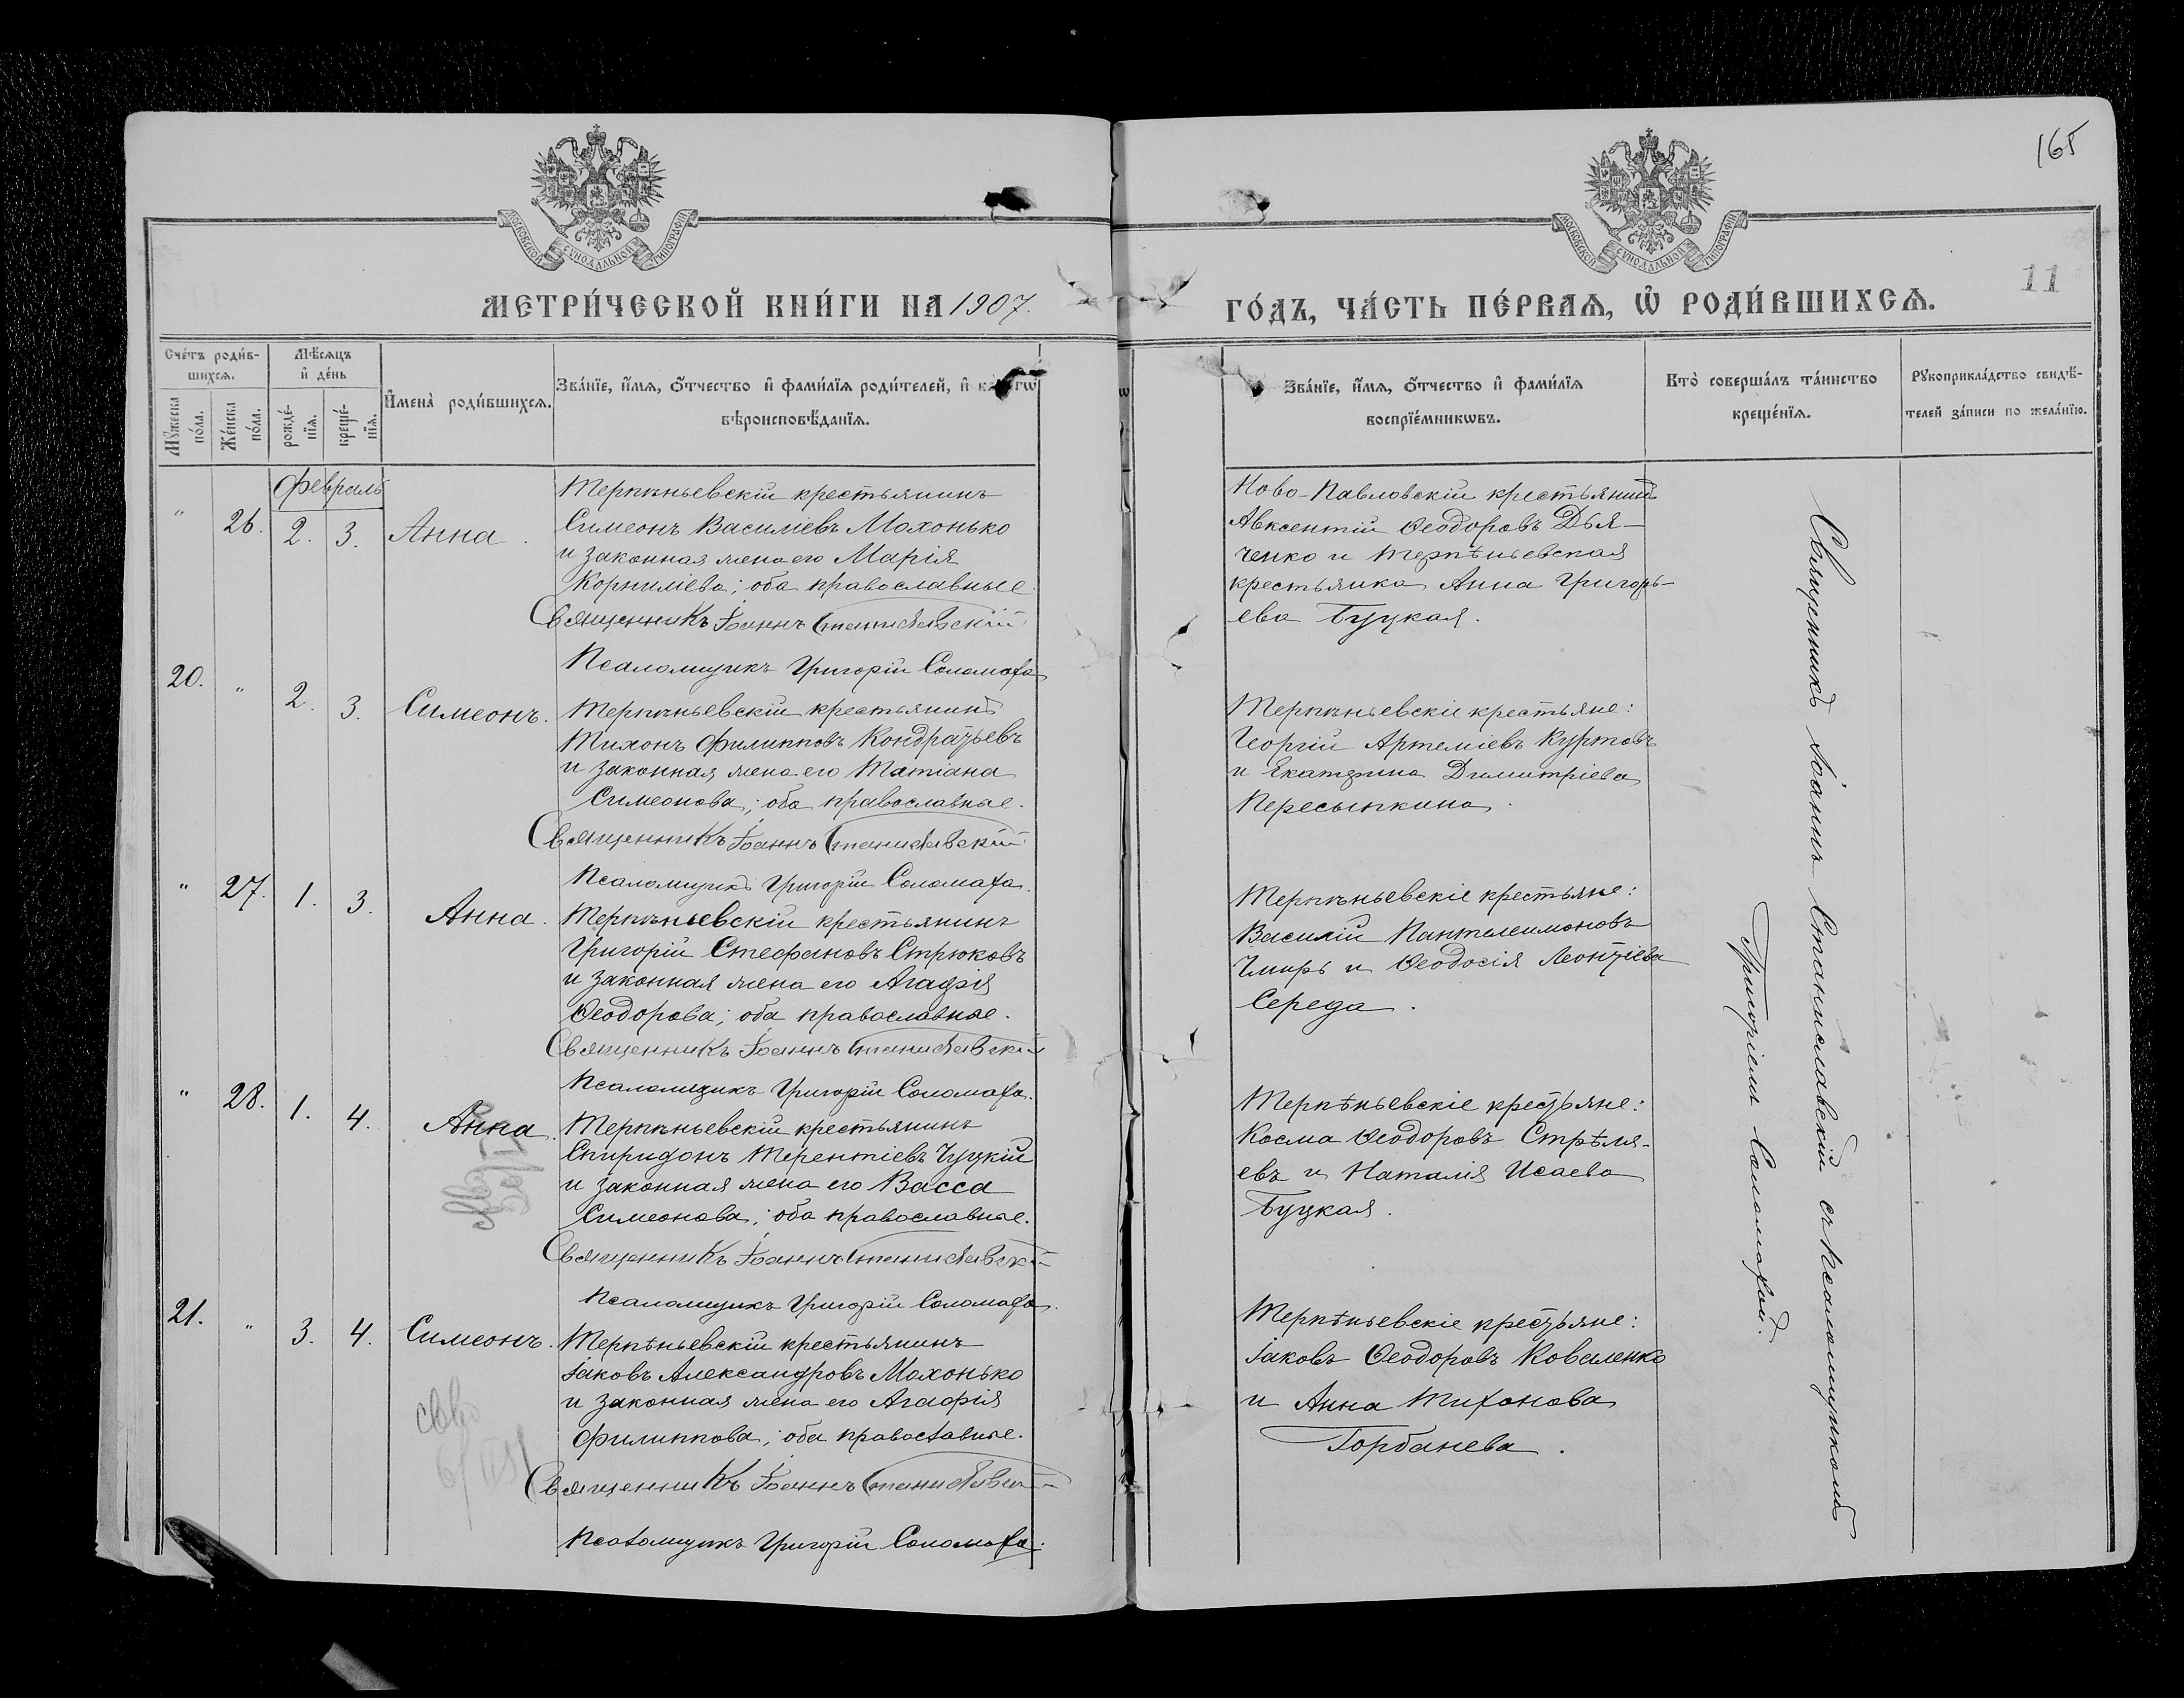 165
11
МОСКОВСКОЙ СѴНОДАЛЬНОЙ ТИПОГРАФІИ
МОСКОВСКОЙ СѴНОДАЛЬНОЙ ТИПОГРАФІИ
МЕТРИ́ЧЕСКОЙ КНИ́ГИ НА 1907.
ГО́ДЪ, ЧА́СТЬ ПЕ́РВАѦ, Ѡ҆ РОДИ́ВШИХСѦ.
Сче́тъ роди́в-
шихсѧ.
Мѣ́сѧцъ
и҆ де́нь
Мꙋ́жеска
по́ла.
Же́нска
по́ла.
рожде́-
нїѧ.
креще́-
нїѧ.
И҆мена̀ роди́вшихсѧ.
Зва́нїе, и҆́мѧ, ѻ҆́тчество и҆ фами́лїѧ роди́телей, и҆
вѣроисповѣ́данїѧ.
Зва́нїе, и҆́мѧ, ѻ҆́тчество и҆ фами́лїѧ
воспрїе́мникѡвъ.
Кто̀ соверша́лъ та́инство
креще́нїѧ.
Рꙋкоприкла́дство свидѣ́-
телей за́писи по жела́нїю.
Февраль
" 26. 2. 3. Анна.
Терпѣньевскій крестьянинъ
Симеонъ Василіевъ Мохонько
и законная жена его Марія
Корниліева; оба православные.
Священникъ Іоаннъ Станиславскій
Псаломщикъ Григорій Соломаха
Ново-Павловскій крестьянинъ
Авксентій Ѳеодоровъ Дья-
ченко и Терпѣньевская
крестьянка Анна Григорь-
ева Буцкая.
20. " 2. 3. Симеонъ.
Терпѣньевскій крестьянинъ
Тихонъ Филипповъ Кондратьевъ
и законная жена его Татіана
Симеонова; оба православные.
Священникъ Іоаннъ Станиславскій
Псаломщикъ Григорій Соломаха.
Терпѣньевскіе крестьяне:
Георгій Артеміевъ Куртовъ
и Екатерина Димитріева
Пересыпкина.
" 27. 1. 3. Анна.
Терпѣньевскій крестьянинъ
Григорій Стефановъ Стрюковъ
и законная жена его Агафія
Ѳеодорова; оба православные.
Священникъ Іоаннъ Станиславскій
Псаломщикъ Григорій Соломаха.
Терпѣньевскіе крестьяне:
Василій Пантелеимоновъ
Чмирь и Ѳеодосія Леонтіева
Середа.
" 28. 1. 4. Анна.
Терпѣньевскій крестьянинъ
Спиридонъ Терентіевъ Чуцкій
и законная жена его Васса
Симеонова; оба православные.
Священникъ Іоаннъ Станиславскій
Псаломщикъ Григорій Соломаха.
Терпѣньевскіе крестьяне:
Косма Ѳеодоровъ Стрѣля-
евъ и Наталія Исаева
Буцкая.
21. " 3. 4. Симеонъ.
Терпѣньевскій крестьянинъ
Іаковъ Александровъ Мохонько
и законная жена его Агафія
Филиппова; оба православные.
Священникъ Іоаннъ Станиславскій
Псаломщикъ Григорій Соломаха.
Терпѣньевскіе крестьяне:
Іаковъ Ѳеодоровъ Коваленко
и Анна Тихонова
Горбанева.
Священникъ Іоаннъ Станиславскій съ псаломщикомъ
Григоріемъ Соломахой.